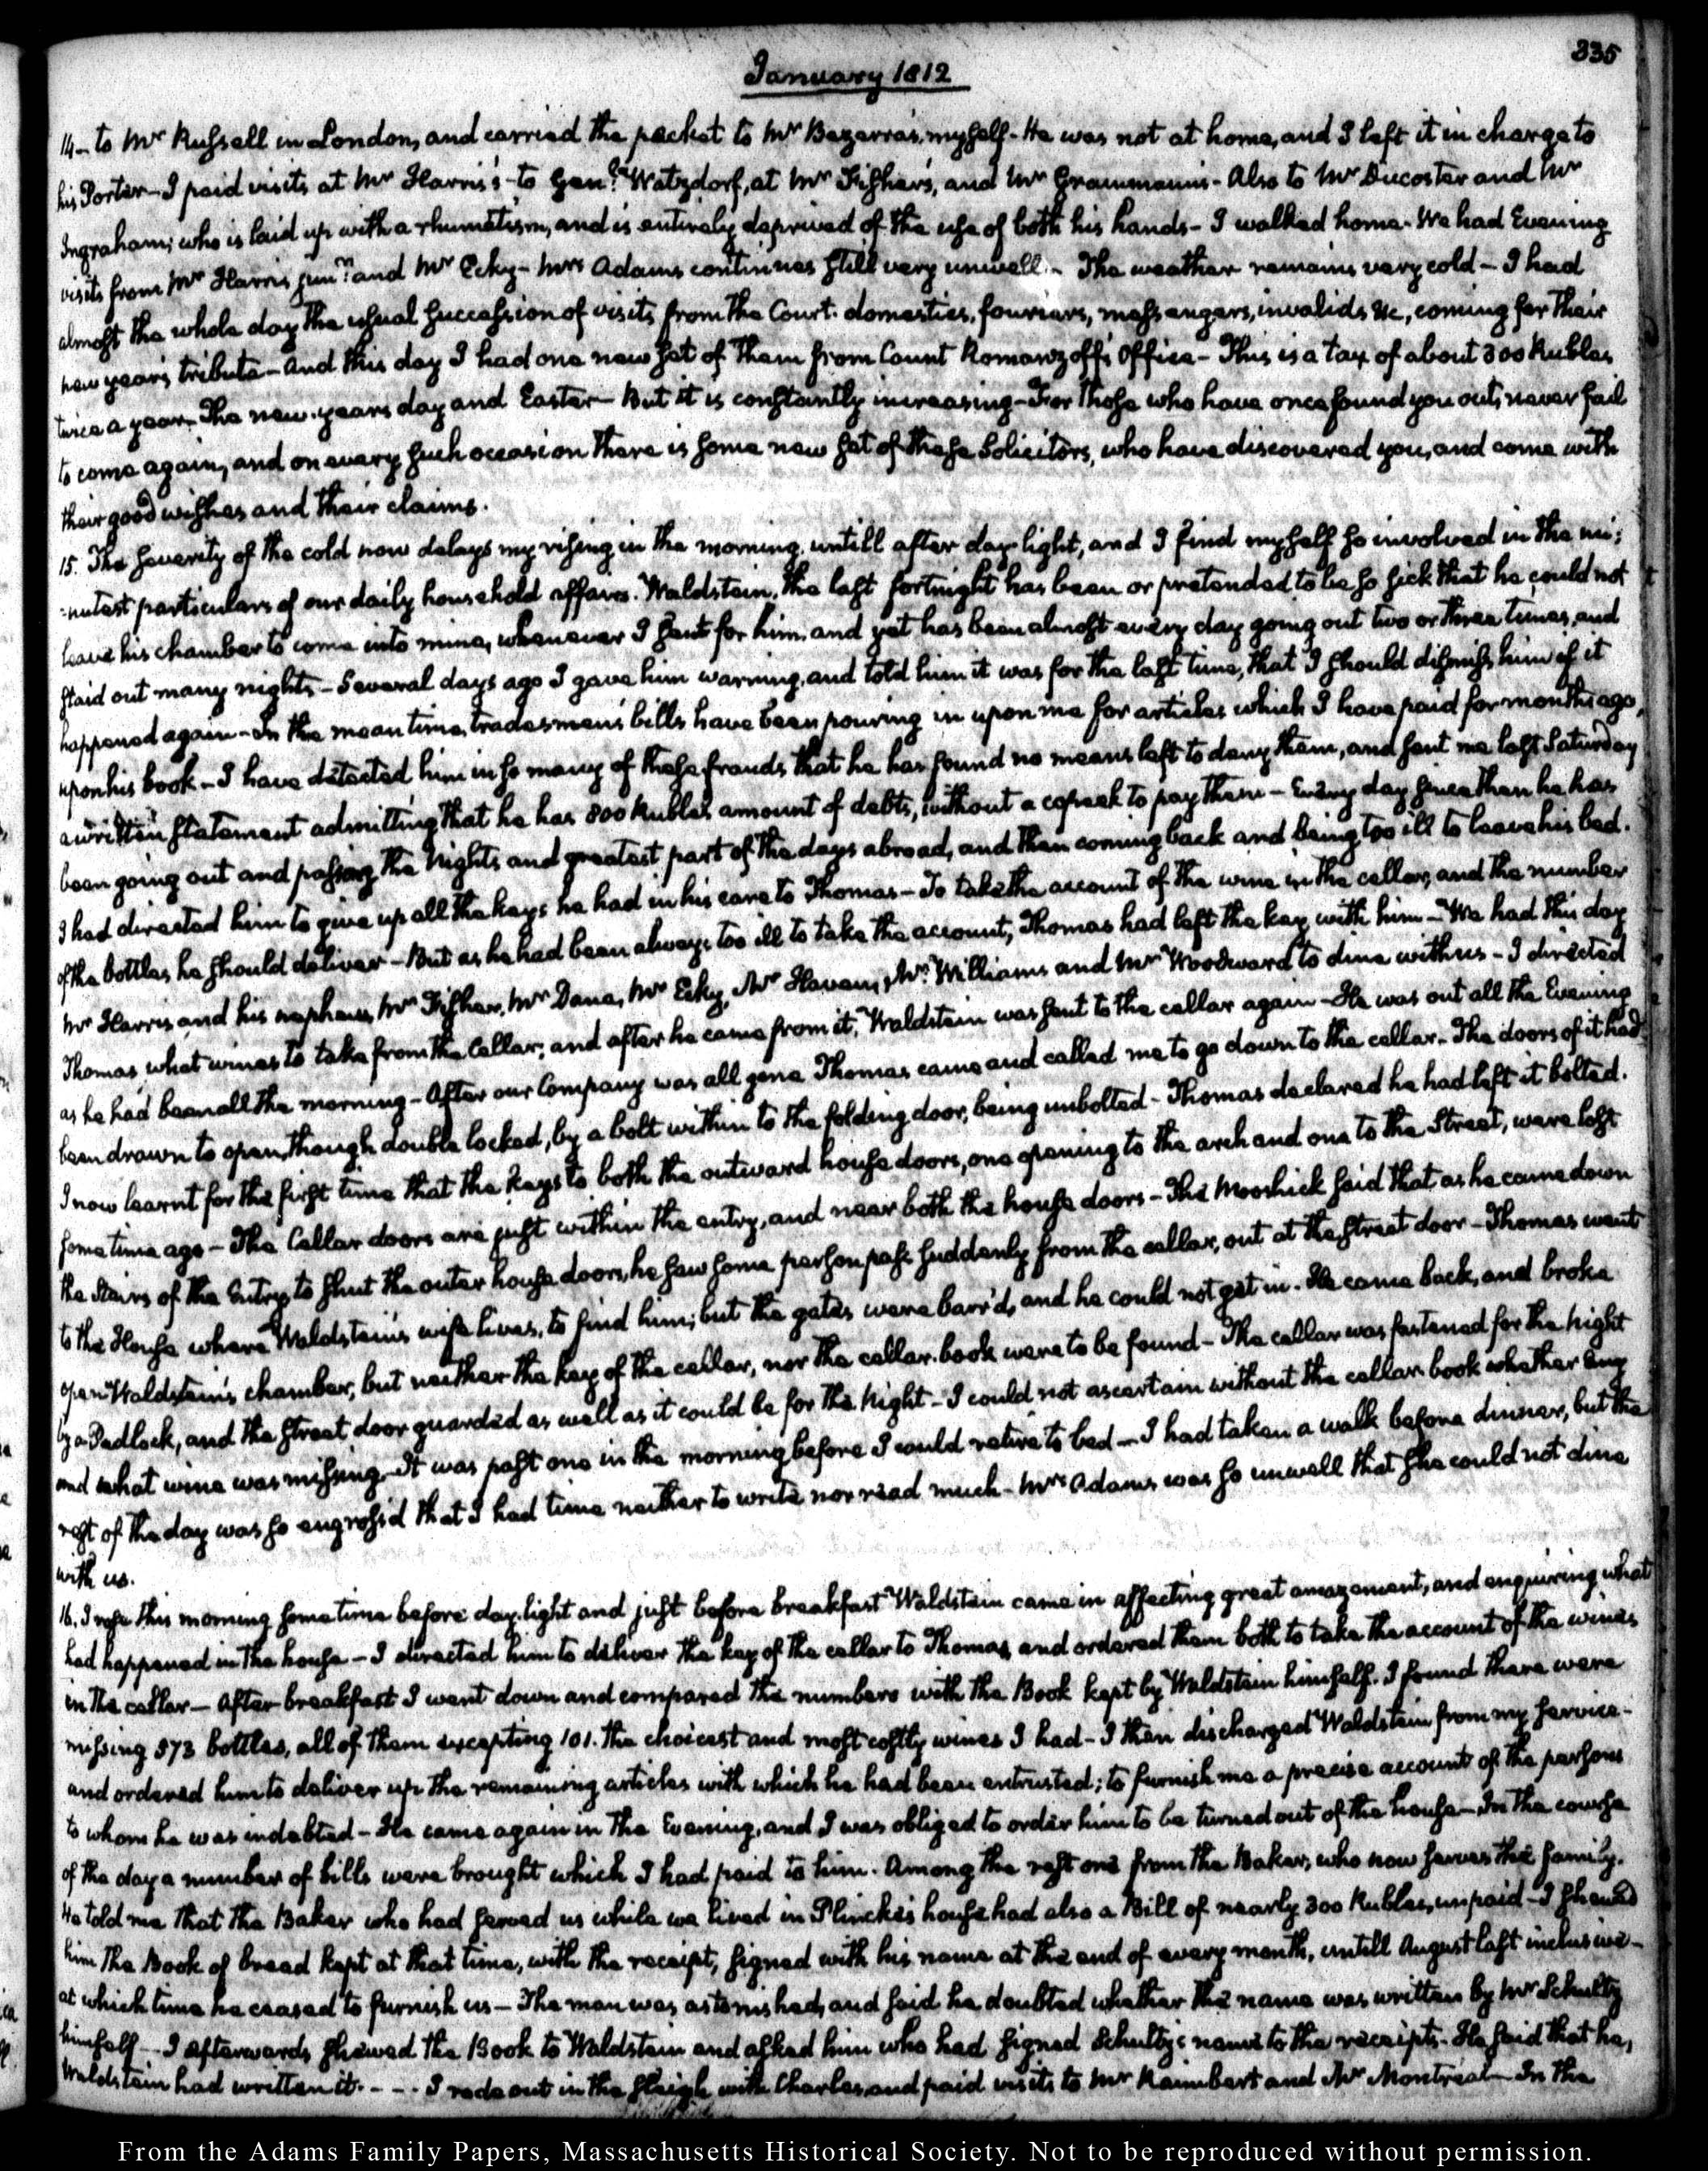 335
January 1812
14_ to Mr Russell in London, and carried the packet to Mr Bezerra's, myself- He was not at home, and I left it in charge to
his Porter- I paid visits at Mr Harris's- to Genl. Watzdorf, at Mr Fisher's, and Mr Grammann's- Also to Mr Ducoster and Mr
Ingraham; who is laid up with a rhumatism, and is entirely deprived of the use of both his hands- I walked home- We had Evening
visits from Mr Harris junr. and Mr Eeky- Mrs Adams continues still very unwell.- The weather remains very cold- I had
almost the whole day the usual succession of visits from the Court: domestics, fouriers, messengers, invalids &c, coming for their
new year's tribute- And this day I had one new set of them from Count Romanzoff's Office- This is a tax of about 300 Rubles
twice a year- The new-years day and Easter- But it is constantly increasing- For those who have once found you out, never fail
to come again, and on every such occasion there is some new set of these Solicitors, who have discovered you, and come with
their good wishes and their claims.
15. The severity of the cold now delays my rising in the morning, untill after day-light, and I find myself so involved in the mi:
:nutest particulars of our daily household affairs. Waldstein, the last fortnight has been or pretended to be so sick that he could not
leave his chamber to come into mine, whenever I sent for him, and yet has been almost every day going out two or three times, and
staid out many nights- Several days ago I gave him warning, and told him it was for the last time, that I should dismiss him if it
happened again- In the mean time, tradesmen's bills have been pouring in upon me for articles which I have paid for months ago,
upon his book- I have detected him in so many of these frauds that he has found no means left to deny them, and sent me last Saturday
a written statement admitting that he has 800 Rubles amount of debts, without a copeek to pay them- Every day since then he has
been going out and passing the nights and greatest part of the days abroad, and then coming back and being too ill to leave his bed.
I had directed him to give up all the keys he had in his care to Thomas- To take the account of the wine in the cellar, and the number
of the bottles he should deliver- But as he had been always too ill to take the account, Thomas had left the key with him- We had this day
Mr Harris and his nephew, Mr Fisher, Mr Dana, Mr Eeky, Mr Haven, Mr Williams and Mr Woodward to dine with us- I directed
Thomas what wines to take from the Cellar; and after he came from it, Waldstein was sent to the cellar again- He was out all the Evening
as he had been all the morning- After our Company was all gone Thomas came and called me to go down to the cellar- The doors of it had
been drawn to open, though double locked, by a bolt within to the folding door, being unbolted- Thomas declared he had left it bolted.
I now learnt for the first time that the keys to both the outward house doors, one opening to the arch and one to the Street, were lost
some time ago- The Cellar doors are just within the entry, and near both the house doors- The Mooshick said that as he came down
the Stairs of the Entry to shut the outer house doors, he saw some person pass suddenly from the cellar, out at the street door- Thomas went
to the House where Waldstein's wife lives, to find him; but the gates were barr'd, and he could not get in. He came back, and broke
open Waldstein's chamber, but neither the key of the cellar, nor the cellar-book were to be found- The cellar was fastened for the night
by a Padlock, and the street door guarded as well as it could be for the Night- I could not ascertain without the cellar-book whether any
and what wine was missing- It was past one in the morning before I could retire to bed- I had taken a walk before dinner, but the
rest of the day was so engross'd that I had time neither to write nor read much- Mrs Adams was so unwell that she could not dine
with us.
16. I rose this morning some time before day-light and just before breakfast Waldstein came in affecting great amazement, and enquiring what
had happened in the house- I directed him to deliver the key of the cellar to Thomas, and ordered them both to take the account of the wines
in the cellar- After breakfast I went down and compared the numbers with the Book kept by Waldstein himself. I found there were
missing 373 bottles, all of them excepting 101. the choicest and most costly wines I had- I then discharged Waldstein from my service-
and ordered him to deliver up the remaining articles with which he had been entrusted; to furnish me a precise account of the persons
to whom he was indebted- He came again in the Evening, and I was obliged to order him to be turned out of the house- In the course
of the day a number of bills were brought which I had paid to him. Among the rest one from the Baker, who now serves the family.
He told me that the Baker who had served us while we lived in Plincke's house had also a Bill of nearly 300 Rubles, unpaid- I shewed
him the Book of bread kept at that time, with the receipt, signed with his name at the end of every month, untill August last inclusive-
at which time he ceased to furnish us- The man was astonished, and said he doubted whether the name was written by Mr Schultz
himself- I afterwards shewed the Book to Waldstein and asked him who had signed Schultz's name to the receipts. He said that he,
Waldstein had written it. - - - I rode out in the sleigh with Charles, and paid visits to Mr Raimbert and Mr Montréal- In the
From the Adams Family Papers, Massachusetts Historical Society. Not to be reproduced without permission.